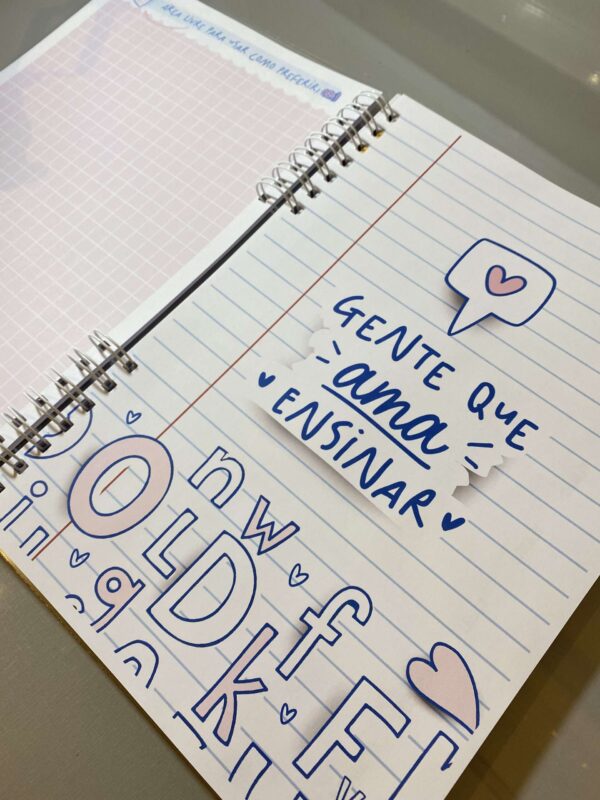 ÁREA LIVRE PARA USAR COMO PREFERIR!
GENTE QUE
ama
ENSINAR
O n w
i n L D f
g k F